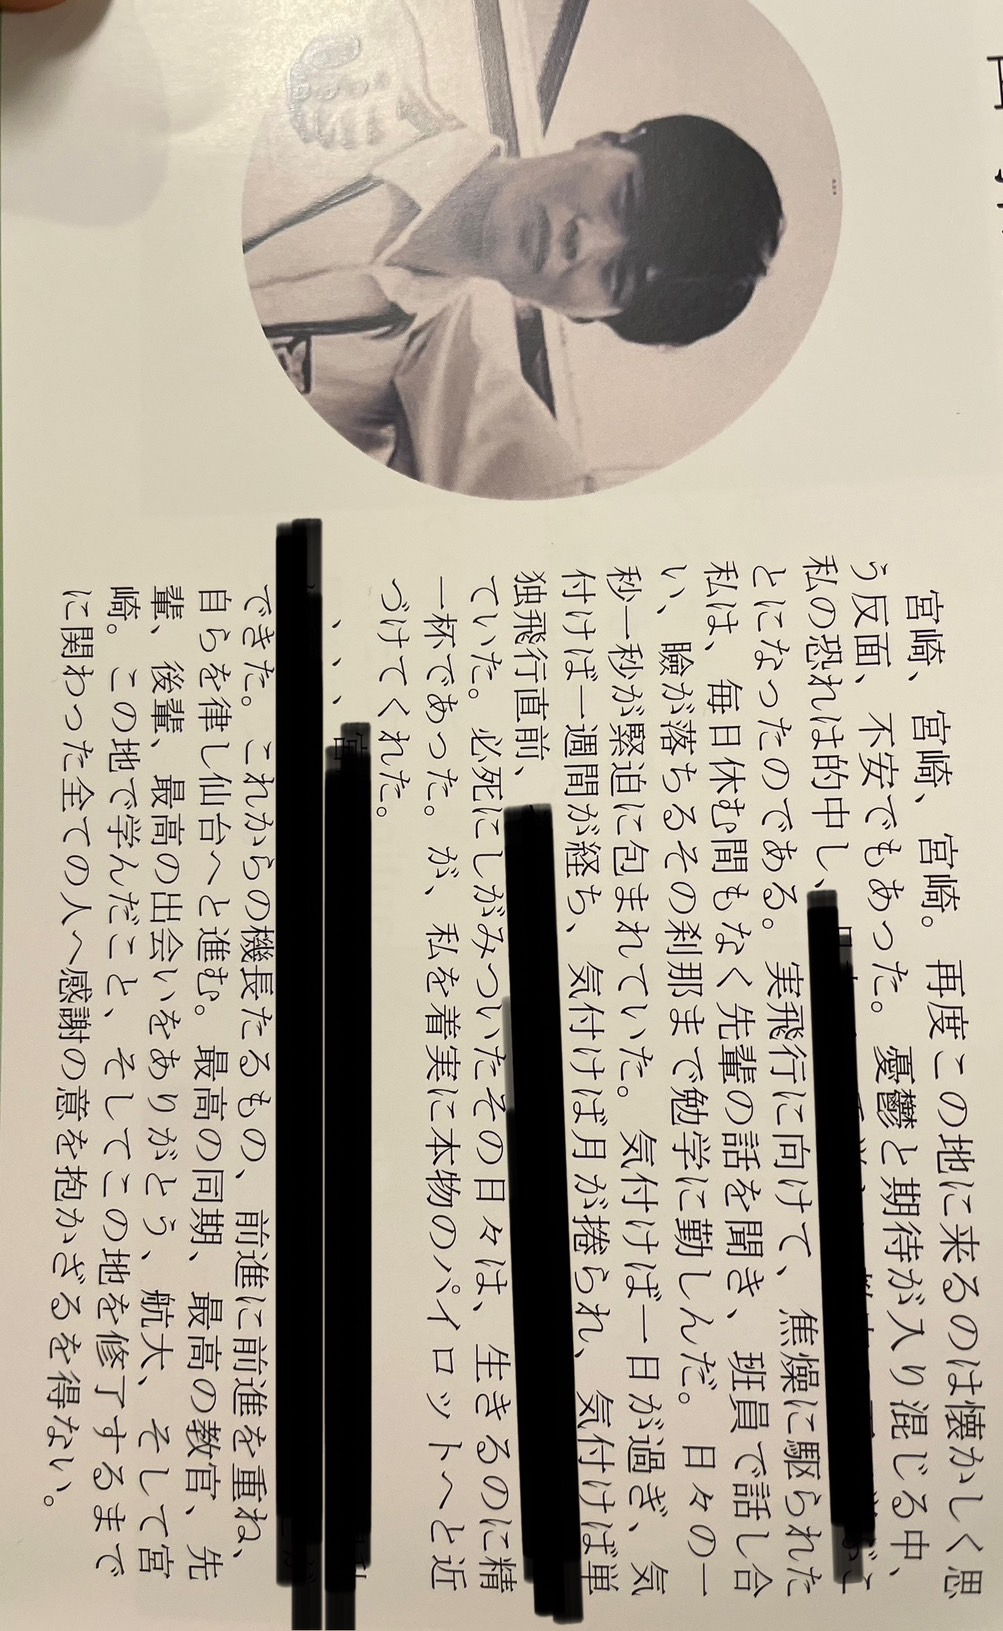 宮崎、宮崎、宮崎。再度この地に来るのは懐かしく思
う反面、不安でもあった。憂鬱と期待が入り混じる中、
私の恐れは的中し、
とになったのである。実飛行に向けて、焦燥に駆られた
私は、毎日休む間もなく先輩の話を聞き、班員で話し合
い、瞼が落ちるその刹那まで勉学に勤しんだ。日々の一
秒一秒が緊迫に包まれていた。気付けば一日が過ぎ、気
付けば一週間が経ち、気付けば月が捲られ、気付けば単
独飛行直前、
ていた。必死にしがみついたその日々は、生きるのに精
一杯であった。が、私を着実に本物のパイロットへと近
づけてくれた。
、、、宮
できた。これからの機長たるもの、前進に前進を重ね、
自らを律し仙台へと進む。最高の同期、最高の教官、先
輩、後輩、最高の出会いをありがとう、航大、そして宮
崎。この地で学んだこと、そしてこの地を修了するまで
に関わった全ての人へ感謝の意を抱かざるを得ない。